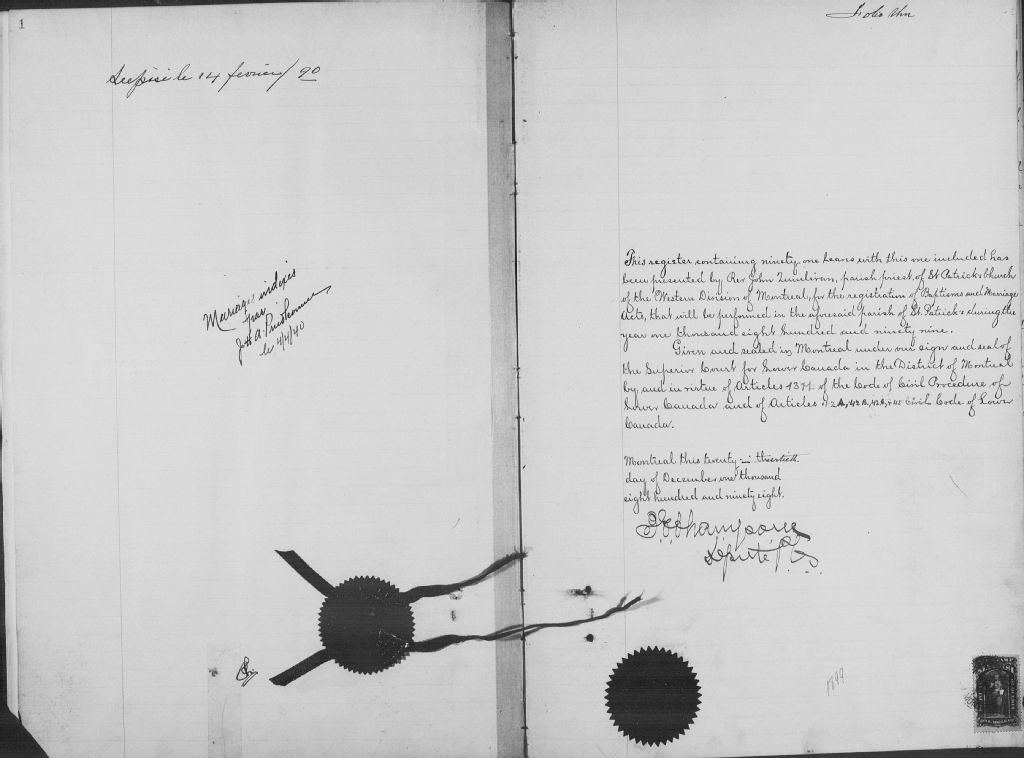 1
le 14 février 90
Marriage indexes
par
Jos A.
le 4/4/40
Folio
This register containing ninety one leaves with this one included has
been presented by Rev John Quinlivan, parish priest of St Patrick's Church
of the Western Division of Montreal, for the registration of Baptisms and Marriage
Acts, that will be performed in the aforesaid parish of St. Patrick's during the
year one thousand eight hundred and ninety nine.
Given and sealed in Montreal under our sign and seal of
the Superior Court for Lower Canada in the District of Montreal
by and in virtue of Articles of the Code of Civil Procedure of
Lower Canada and of Articles Civil Code of Lower
Canada.
Montreal this twenty
day of December one thousand
eight hundred and ninety eight.
Députe P.C.S.
1899